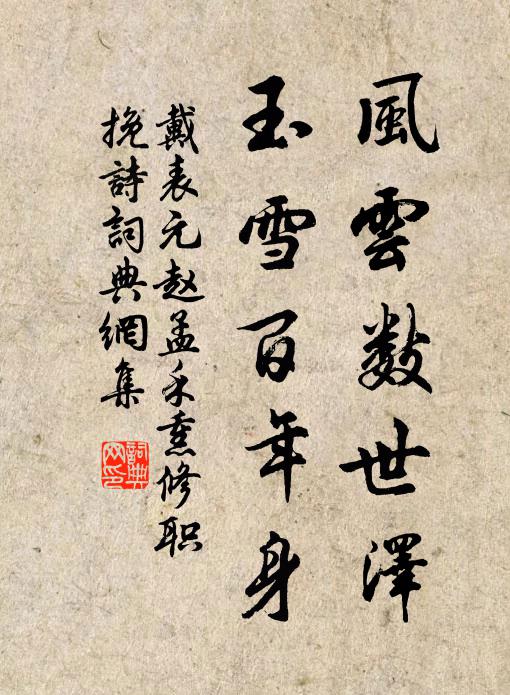 風雲數世澤
玉雪百年身
戴表元赵孟禾熏修职
挽詩詞典網集
詞典网印